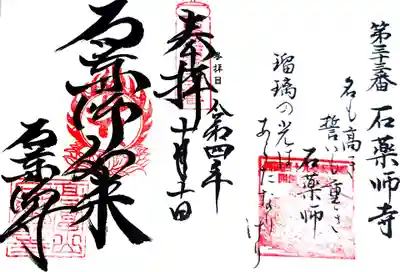 第三三番 石薬師寺
名も高き
誓いも重き
石薬師
瑠璃の光は
あらたなりけり
奉拝
参拝日
令和四年
十月十一日
石薬師如来
石薬師寺